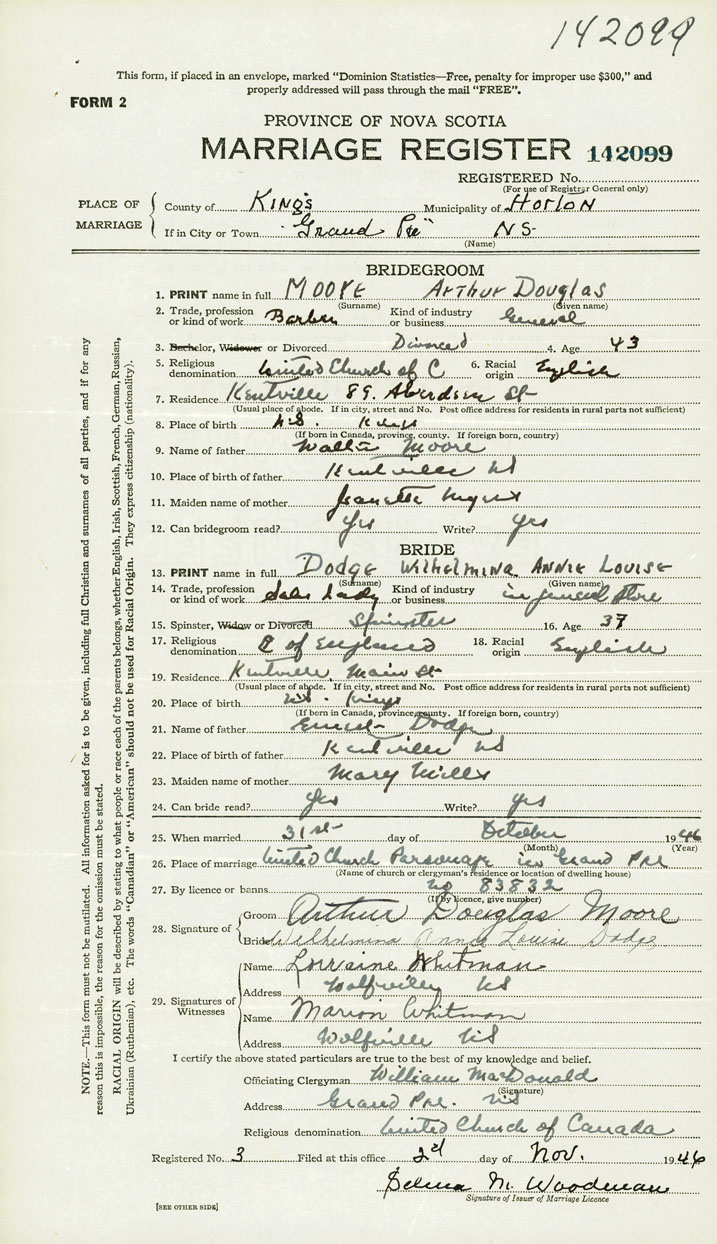 142099
This form, if placed in an envelope, marked "Dominion Statistics—Free, penalty for improper use $300," and
properly addressed will pass through the mail "FREE".
FORM 2
PROVINCE OF NOVA SCOTIA
MARRIAGE REGISTER 142099
REGISTERED No.
(For use of Registrar General only)
PLACE OF MARRIAGE
County of Kings Municipality of Horton
If in City or Town "Grand Pre" NS
(Name)
BRIDEGROOM
1. PRINT name in full Moore Arthur Douglas
(Surname) (Given name)
2. Trade, profession or kind of work Barber Kind of industry or business General
3. Bachelor, Widower or Divorced Divorced 4. Age 43
5. Religious denomination United Church of C 6. Racial origin English
7. Residence Kentville 89. Aberdeen St
(Usual place of abode. If in city, street and No. Post office address for residents in rural parts not sufficient)
8. Place of birth N.S. Kings
(If born in Canada, province, county. If foreign born, country)
9. Name of father Walter Moore
10. Place of birth of father Kentville NS
11. Maiden name of mother Jeanette Myers
12. Can bridegroom read? Yes Write? Yes
BRIDE
13. PRINT name in full Dodge Wilhelmina Annie Louise
(Surname) (Given name)
14. Trade, profession or kind of work Sales Lady Kind of industry or business in general store
15. Spinster, Widow or Divorced Spinster 16. Age 37
17. Religious denomination C of England 18. Racial origin English
19. Residence Kentville, Main St
(Usual place of abode. If in city, street and No. Post office address for residents in rural parts not sufficient)
20. Place of birth NS. Kings
(If born in Canada, province, county. If foreign born, country)
21. Name of father Ernest Dodge
22. Place of birth of father Kentville NS
23. Maiden name of mother Mary Mills
24. Can bride read? Yes Write? Yes
25. When married 31st day of October 1946
(Month) (Year)
26. Place of marriage United Church Parsonage in Grand Pre
(Name of church or clergyman's residence or location of dwelling house)
27. By licence or banns no 83832
(If by licence, give number)
28. Signature of
Groom Arthur Douglas Moore
Bride Wilhelmina Anna Louise Dodge
29. Signatures of Witnesses
Name Lorraine Whitman
Address Wolfville NS
Name Marion Whitman
Address Wolfville NS
I certify the above stated particulars are true to the best of my knowledge and belief.
Officiating Clergyman William MacDonald
(Signature)
Address Grand Pre. NS
Religious denomination United Church of Canada
Registered No. 3 Filed at this office 2nd day of Nov. 1946
Selma M. Woodman
Signature of Issuer of Marriage Licence
[SEE OTHER SIDE]
NOTE.—This form must not be mutilated. All information asked for is to be given, including full Christian and surnames of all parties, and if for any
reason this is impossible, the reason for the omission must be stated.
RACIAL ORIGIN will be described by stating to what people or race each of the parents belongs, whether English, Irish, Scottish, French, German, Russian,
Ukrainian (Ruthenian), etc. The words "Canadian" or "American" should not be used for Racial Origin. They express citizenship (nationality).